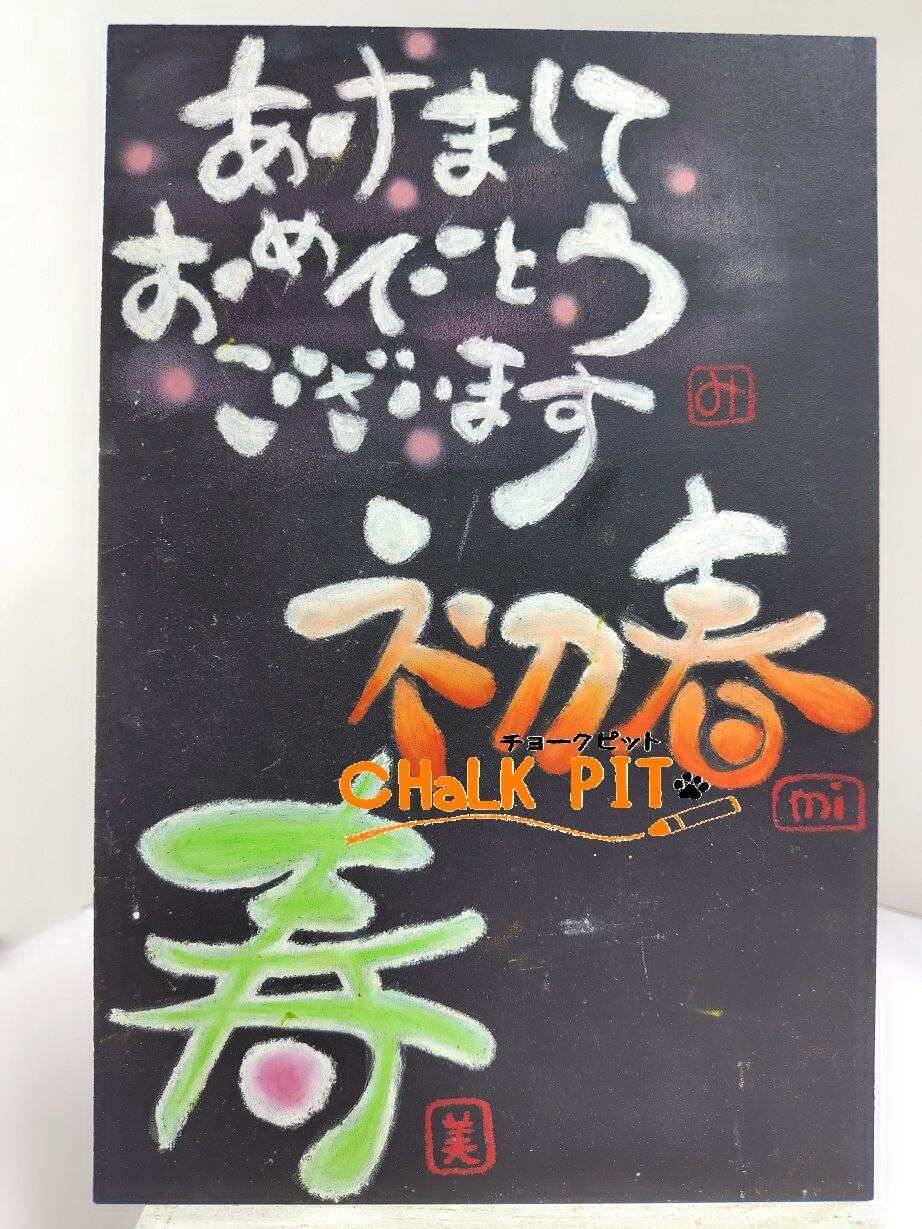 あけまして
おめでとう
ございます
み
初春
mi
チョークピット
CHaLK PIT
寿
美